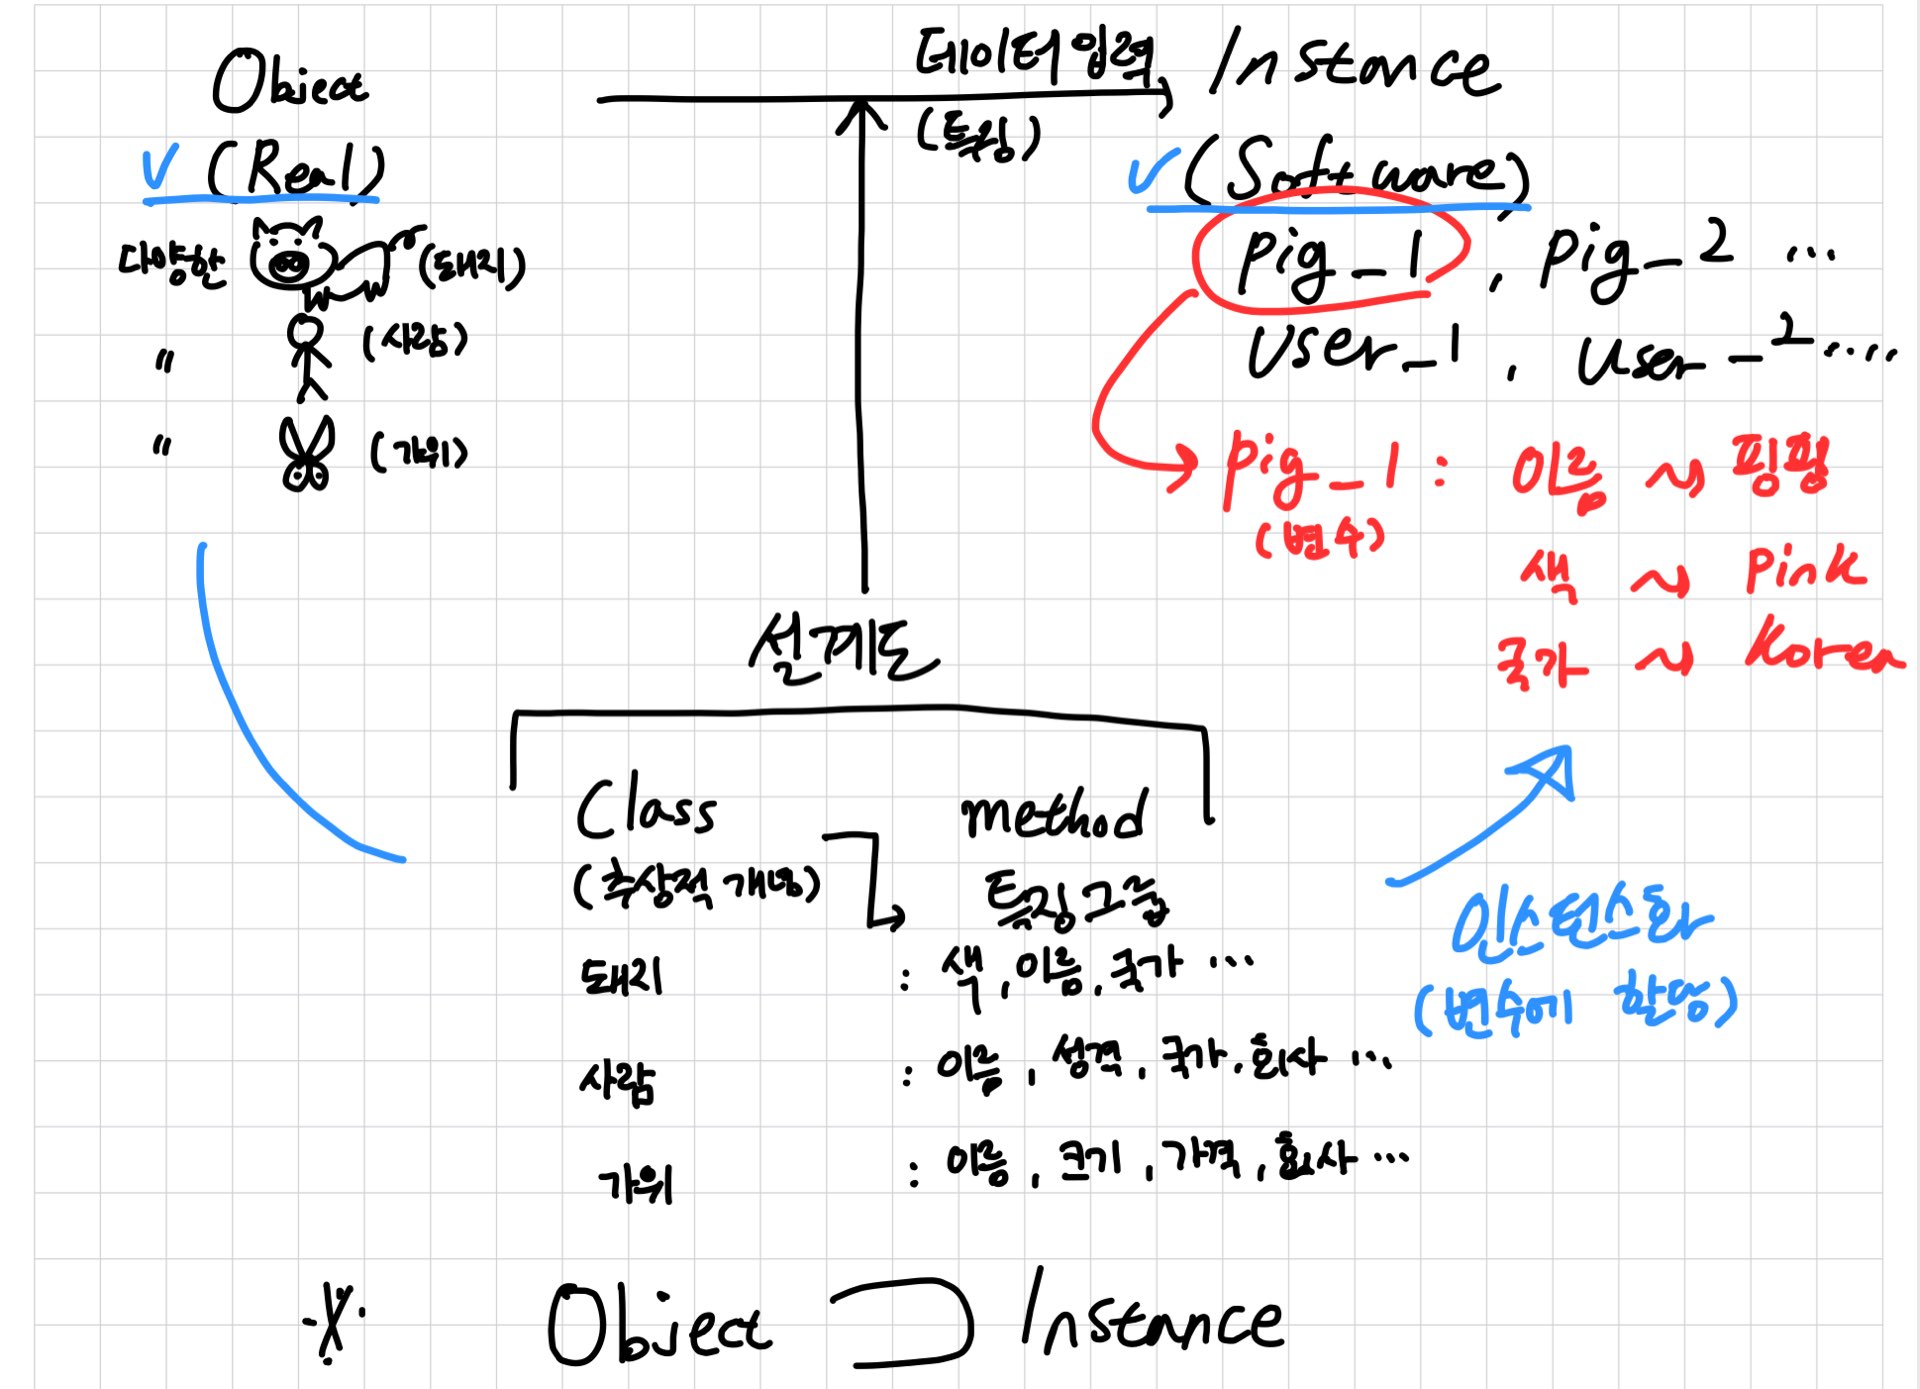 Object
(Real)
다양한 (돼지)
〃 (사람)
〃 (가위)
데이터 입력
(특징)
Instance
(Software)
pig_1, pig_2 ...
user_1, user_2 ....
pig_1 : 이름 ~> 핑핑
(변수)
색 ~> Pink
국가 ~> Korea
설계도
Class method
(추상적 개념) 특징그룹
돼지 : 색, 이름, 국가 ...
사람 : 이름, 성격, 국가, 회사 ...
가위 : 이름, 크기, 가격, 회사 ...
인스턴스화
(변수에 할당)
※ Object ⊃ Instance